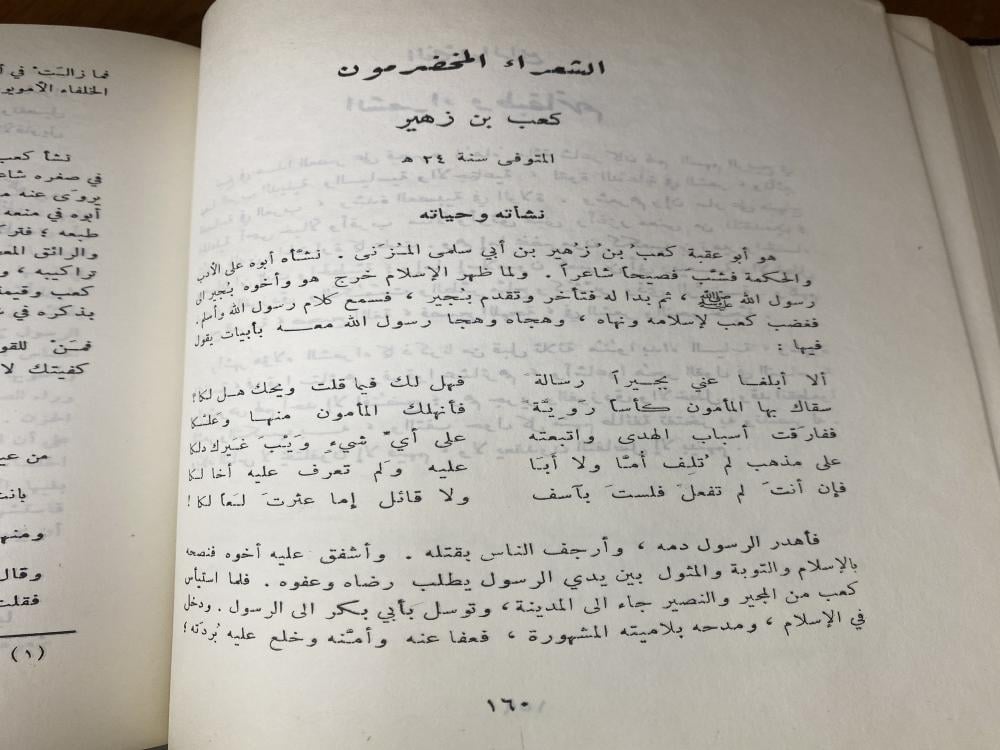 الشعراء المخضرمون
كعب بن زهير
المتوفى سنة ٢٤ هـ
نشأته وحياته
هو أبو عقبة كعبُ بنُ زُهير بن أبي سلمى المُزَنى . نشَّأه أبوه على الأدب
والحكمة فشبَّ فصيحاً شاعراً . ولما ظهر الإسلام خرج هو وأخوه بُجير الى
رسول الله ﷺ ، ثم بدا له فتأخر وتقدم بُجير ، فسمع كلام رسول الله وأسلم .
فغضب كعب لإسلامه ونهاه ، وهجاه وهجا رسول الله معـــه بأبيات يقول
فيها :
ألا أبلغا عني بجيراً رسالةً فهل لك فيما قلت ويحك هل لكا؟
سقاك بها المأمون كأساً رَوِيَّةً فأنهلك المأمون منها وعَلّكا
ففارَقت أسباب الهدى واتبعته على أيِّ شيءٍ وَيْبَ غَيَرِك دلكا
على مذهب لم تُلِف أمّاً ولا أباً عليه ولم تعرف عليه أخا لكا
فإن أنتَ لم تفعلْ فلستَ بآسف ولا قائل إما عثرتَ لَعاً لكا !
فأهدر الرسول دمه ، وأرجف الناس بقتله . وأشفق عليه أخوه فنصحه
بالإسلام والتوبة والمثول بين يدي الرسول يطلب رضاه وعفوه . فلما استيأس
كعب من المجير والنصير جاء الى المدينة ، وتوسل بأبي بكر الى الرسول . ودخل
في الإسلام ، ومدحه بلاميته المشهورة ، فعفا عنه وأمَّنه وخلع عليه بُردَته ؛
١٦٠
فما زالت في أ
الخلفاء الأمويو
نشأ كعب
في صغره شاع
يروَى عنه م
أبوه في منعه
طبعه ؛ فترك
والرائق المع
تراكيبه ، و
كعب وقيمة
بذكره في ش
فمَنْ للقو
كفيتك لا
من عي
بانت
ومنها
وقال
فقلت
(١)